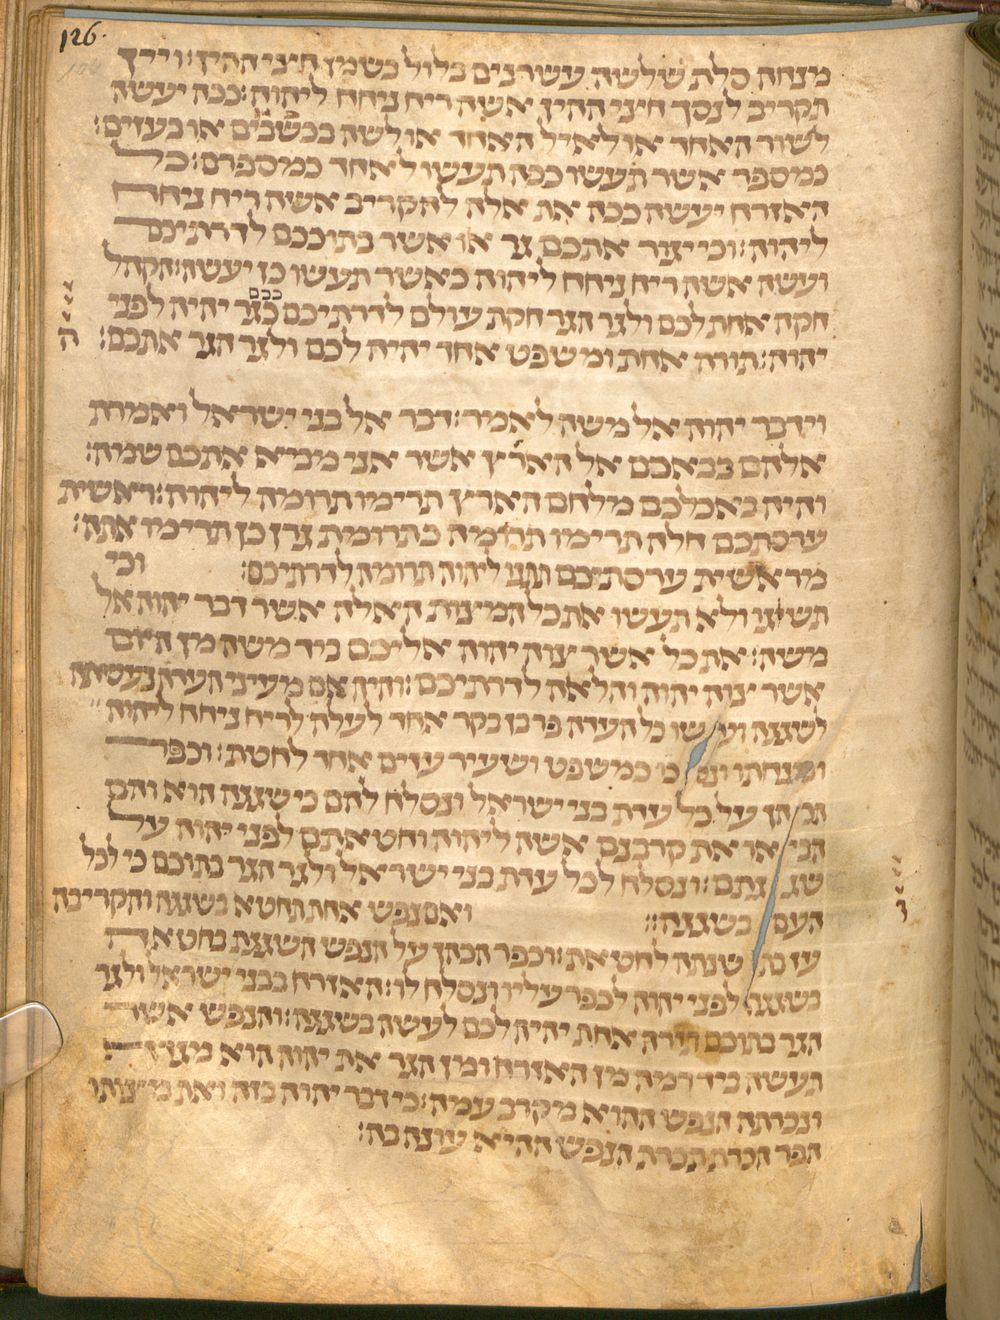 126.
מנחה סלת שלשה עשרנים בלול בשמן חצי ההין: ויין
תקריב לנסך חצי ההין אשה ריח ניחח ליהוה: ככה יעשה
לשור האחד או לאיל האחד או לשה בכשבים או בעזים:
כמספר אשר תעשו ככה תעשו לאחד כמספרם: כל
האזרח יעשה ככה את אלה להקריב אשה ריח ניחח
ליהוה: וכי יגור אתכם גר או אשר בתוככם לדרתיכם
ועשה אשה ריח ניחח ליהוה כאשר תעשו כן יעשה: הקהל
חקה אחת לכם ולגר הגר חקת עולם לדרתיכם ככם כגר יהיה לפני
יהוה: תורה אחת ומשפט אחד יהיה לכם ולגר הגר אתכם:
ה
וידבר יהוה אל משה לאמר: דבר אל בני ישראל ואמרת
אלהם בבאכם אל הארץ אשר אני מביא אתכם שמה:
והיה באכלכם מלחם הארץ תרימו תרומה ליהוה: ראשית
ערסתכם חלה תרימו תרומה כתרומת גרן כן תרימו אתה:
מראשית ערסתיכם תתנו ליהוה תרומה לדרתיכם: וכי
תשגו ולא תעשו את כל המצות האלה אשר דבר יהוה אל
משה: את כל אשר צוה יהוה אליכם ביד משה מן היום
אשר צוה יהוה והלאה לדרתיכם: והיה אם מעיני העדה נעשתה
לשגגה ועשו כל העדה פר בן בקר אחד לעלה לריח ניחח ליהוה
ומנחתו ונס כו כמשפט ושעיר עזים אחד לחטת: וכפר
הכהן על כל עדת בני ישראל ונסלח להם כי שגגה הוא והם
הביאו את קרבנם אשה ליהוה וחטאתם לפני יהוה על
שגגתם: ונסלח לכל עדת בני ישראל ולגר הגר בתוכם כי לכל
העם בשגגה: ואם נפש אחת תחטא בשגגה והקריבה
ו
עז בת שנתה לחטאת: וכפר הכהן על הנפש השגגת בחטאה
בשגגה לפני יהוה לכפר עליו ונסלח לו: האזרח בבני ישראל ולגר
הגר בתוכם תורה אחת יהיה לכם לעשה בשגגה: והנפש אשר
תעשה ביד רמה מן האזרח ומן הגר את יהוה הוא מגדף
ונכרתה הנפש ההוא מקרב עמה: כי דבר יהוה בזה ואת מצותו
הפר הכרת תכרת הנפש ההיא עונה בה: